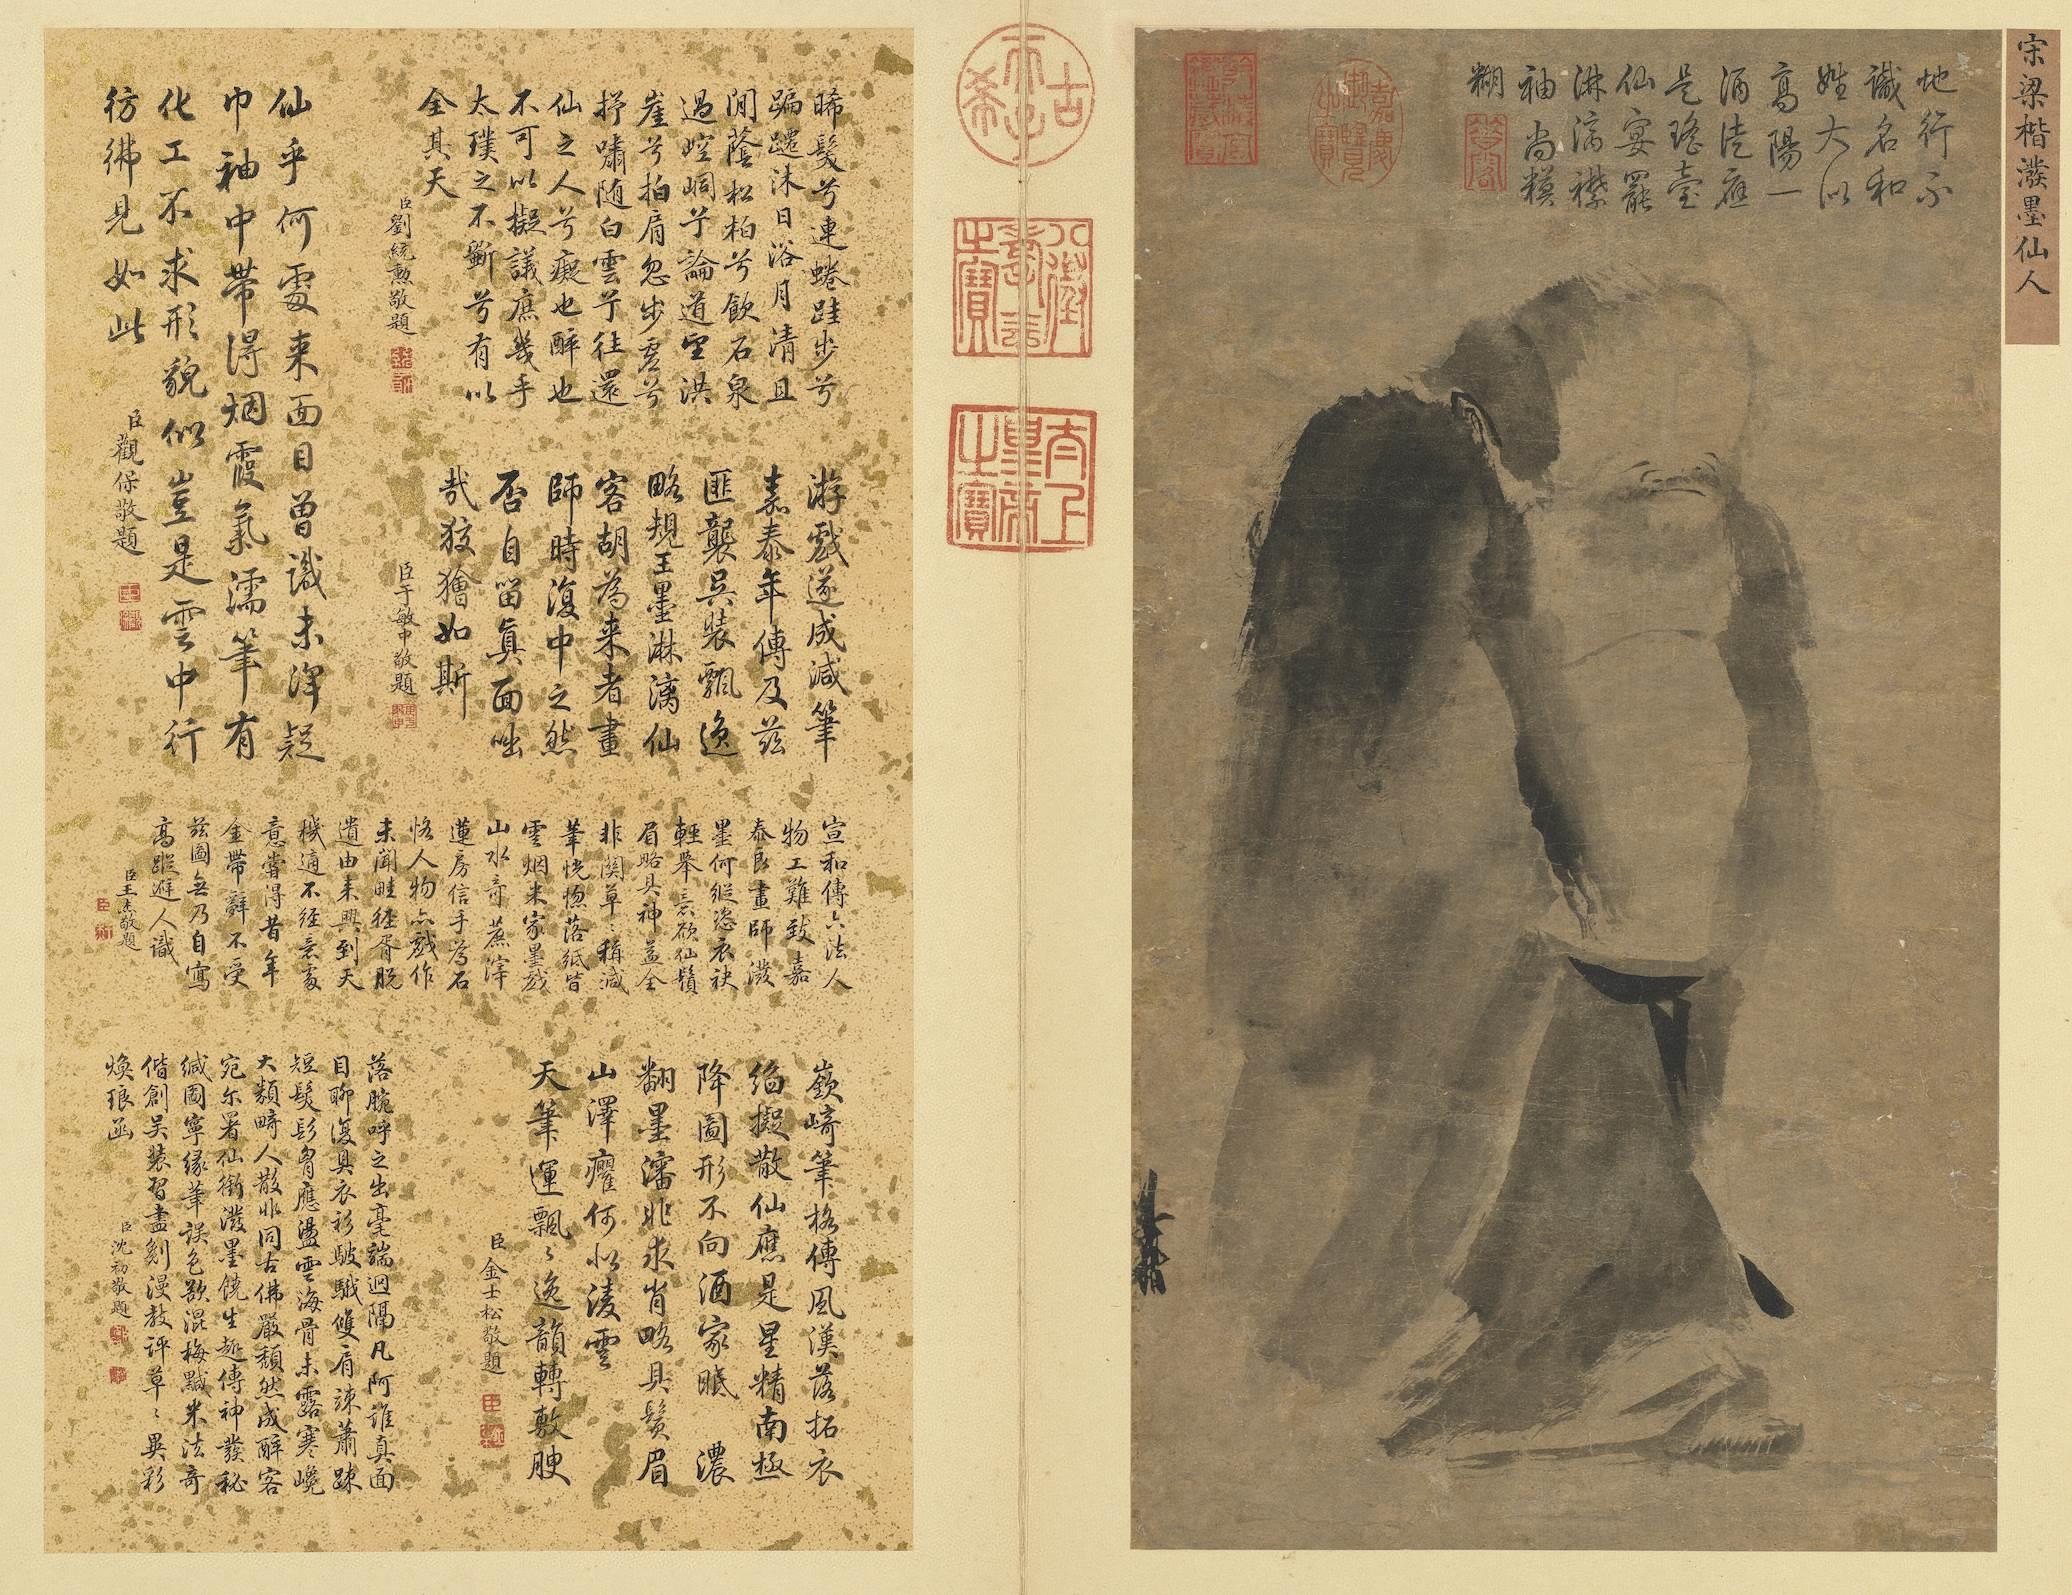 宋梁楷潑墨仙人
地行不
識名和
姓大似
高陽一
酒徒應
是瑤臺
仙宴罷
淋漓襟
袖尚模
糊
古希天子
八徵耄念之寶
太上皇帝之寶
嘉慶御覽之寶
晞髮兮連蜷跬步兮
蹁躚沐日浴月清且
閒蔭松柏兮飲石泉
過崆峒兮論道望洪
崖兮拍肩忽步虛兮
抒嘯隨白雲兮往還
仙之人兮癡也醉也
不可以擬議庶幾乎
太璞之不斲兮有以
全其天
臣劉統勲敬題
仙乎何處来面目曽識未渾疑
巾袖中帶得烟霞氣濡筆有
化工不求形貌似豈是雲中行
彷彿見如此
臣觀保敬題
游戲遂成減筆
嘉泰年傳及茲
匪襲吳裝飄逸
略規王墨淋漓仙
客胡為来者畫
師時復中之然
否自留真面咄
哉狡獪如斯
臣于敏中敬題
宣和傳六法人
物工難致嘉
泰良畫師潑
墨何縱恣衣袂
輕舉意欲仙鬚
眉略具神益全
非關草〻稱減
筆恍惚落紙皆
雲烟米家墨戲
山水奇蔗滓
蓮房信手為石
恪人物亦戲作
未聞畦徑胥脫
遺由来興到天
機適不經意處
意嘗得昔年
金帶辭不受
茲圖無乃自寫
高蹤避人識
臣王杰敬題
嶔崎筆格傳風漢落拓衣
袍擬散仙應是星精南極
降圖形不向酒家眠 濃
翻墨瀋非求肖略具鬚眉
山澤癯何似凌雲
天筆運飄〻逸韻轉敷腴
臣金士松敬題
落腕呼之出毫端迥隔凡阿誰真面
目聊復具衣衫駊騀雙肩竦蕭踈
短髮髟胷應盪雲海骨未露寒巉
大類畸人散非同古佛嚴頽然成醉客
宛尓署仙銜潑墨饒生趣傳神發秘
緘圖寧緣筆誤色欲混梅黬米法奇
偕創吳裝習盡剗漫教評草〻異彩
煥琅函
臣沈初敬題